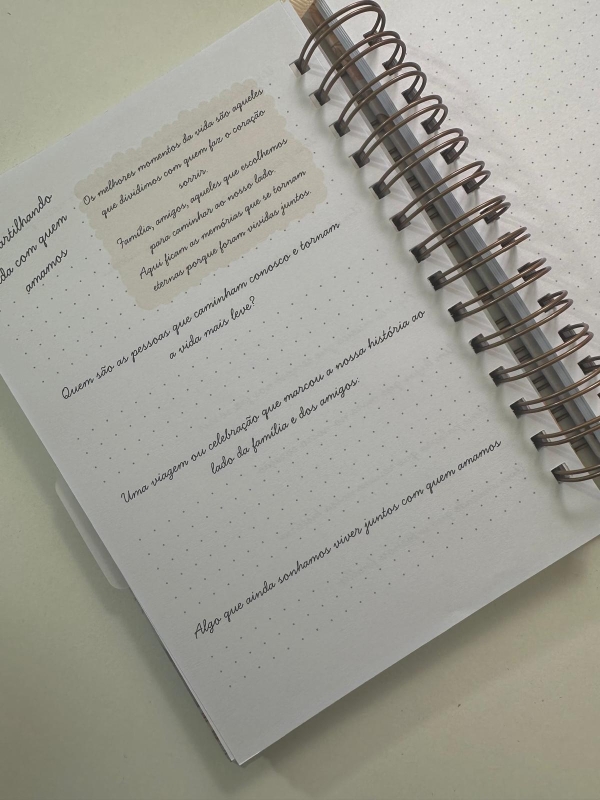 amamos
Os melhores momentos da vida são aqueles
que dividimos com quem faz o coração
sorrir.
Família, amigos, aqueles que escolhemos
para caminhar ao nosso lado.
Aqui ficam as memórias que se tornam
eternas porque foram vividas juntos.
Quem são as pessoas que caminham conosco e tornam
a vida mais leve?
Uma viagem ou celebração que marcou a nossa história ao
lado da família e dos amigos.
Algo que ainda sonhamos viver juntos com quem amamos